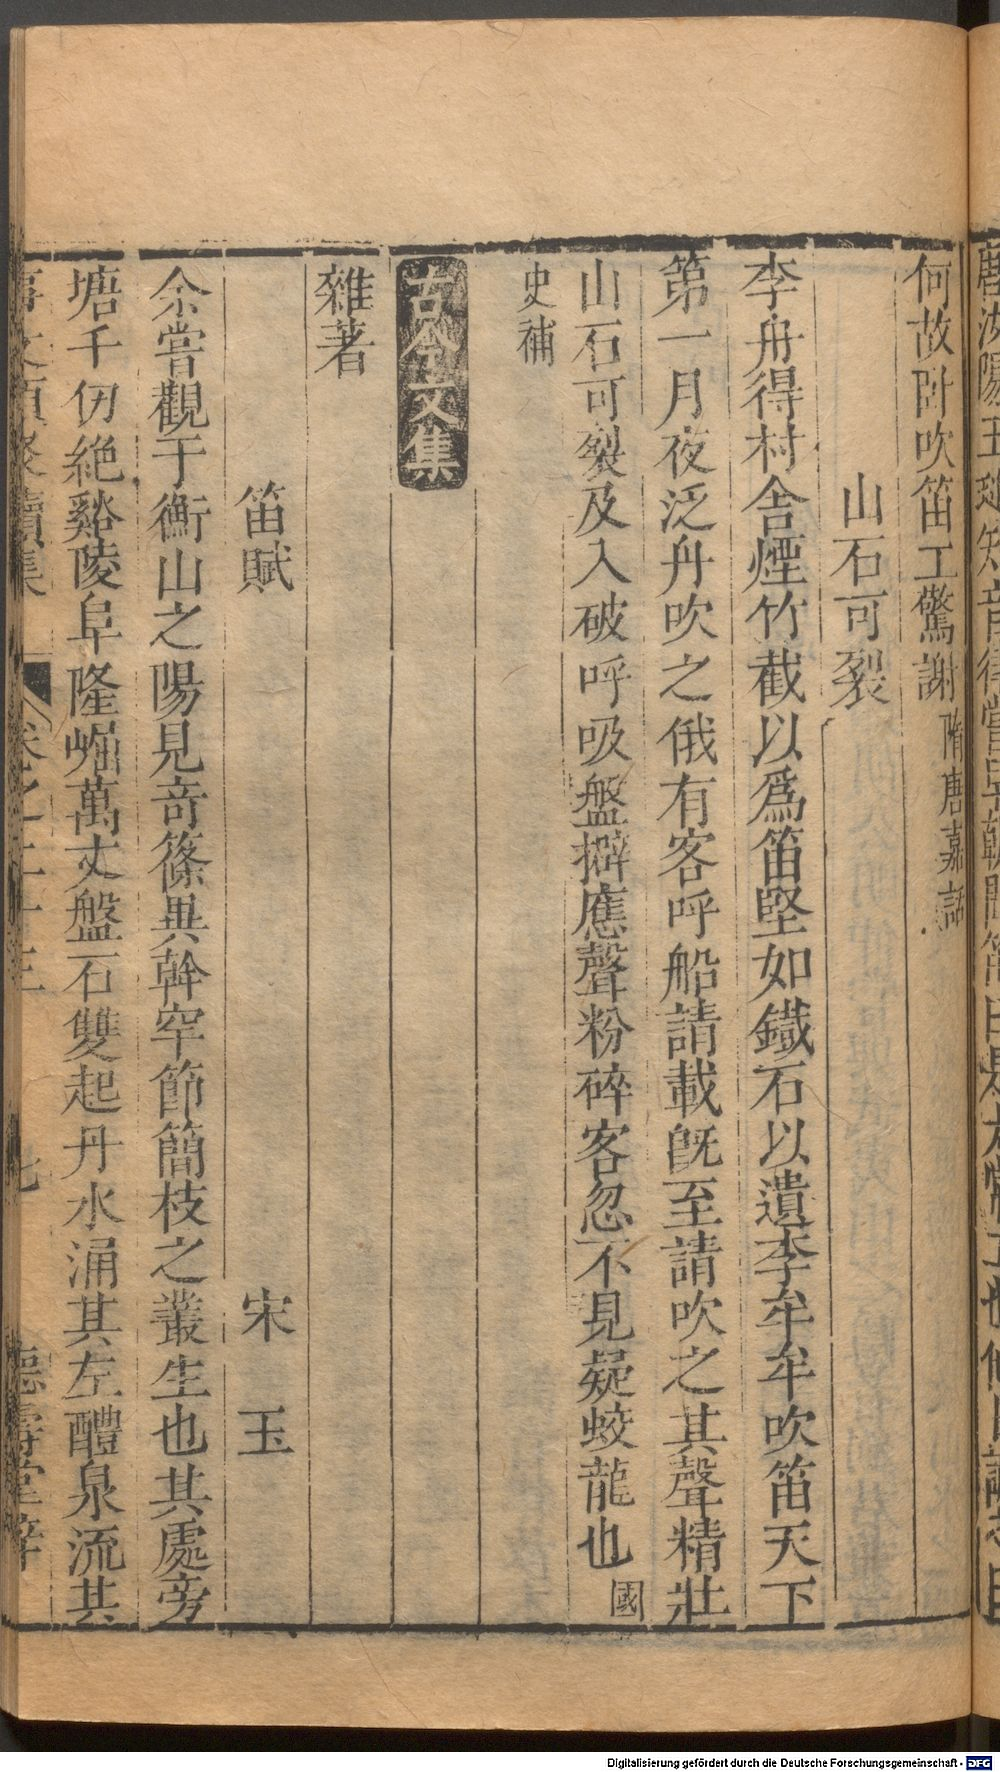 何故卧吹笛工驚謝隋唐嘉話
山石可裂
李舟得村舎煙竹截以爲笛堅如鐡石以遺李牟牟吹笛天下
第一月夜泛舟吹之俄有客呼船請載旣至請吹之其聲精壯
山石可裂及入破呼吸盤擗應聲粉碎客忽不見疑蛟龍也國
史補
古今文集
雜著
笛賦 宋玉
余嘗觀于衡山之陽見竒篠異幹罕節簡枝之叢生也其處旁
塘千仞絶谿陵阜隆崛萬丈盤石雙起丹水涌其左醴泉流其
事文類聚續集 卷之二十三 七 德壽堂梓
Digitalisierung gefördert durch die Deutsche Forschungsgemeinschaft - DFG